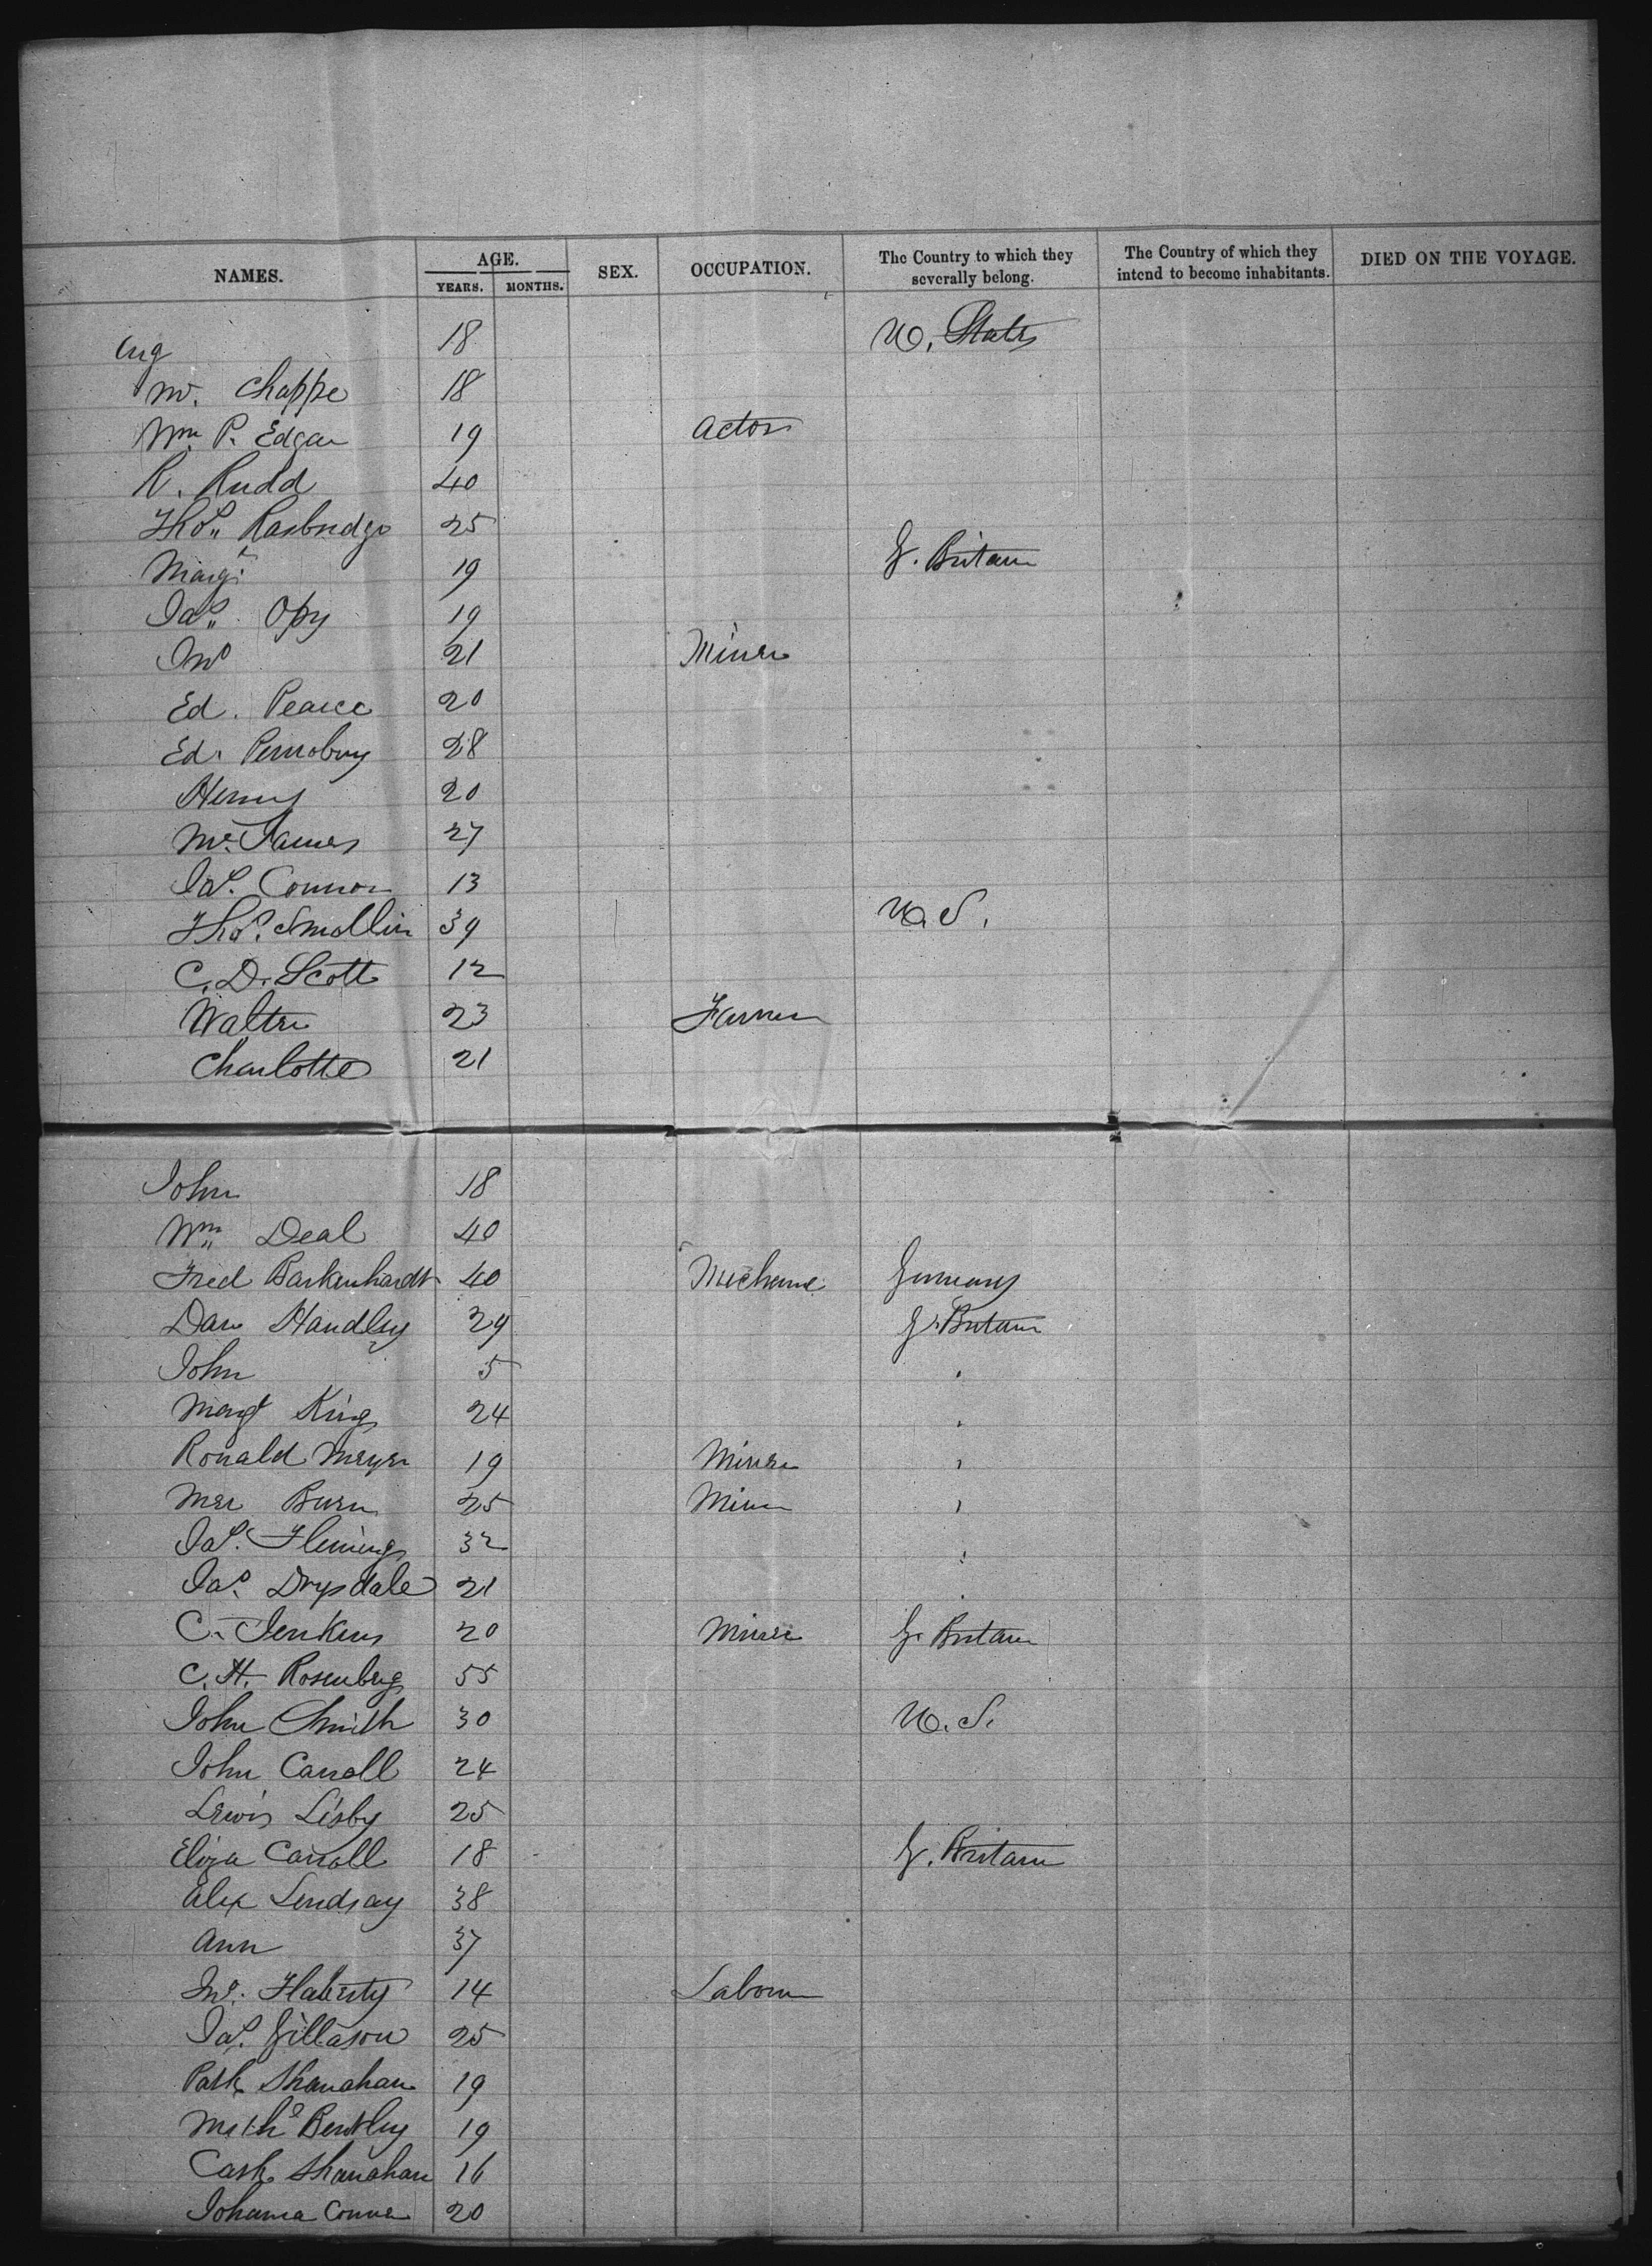 NAMES. AGE. YEARS. MONTHS. SEX. OCCUPATION. The Country to which they severally belong. The Country of which they intend to become inhabitants. DIED ON THE VOYAGE.
Aug 18 U. States
W. Chappe 18
Wm P. Edgar 19 Actor
R. Rudd 40
Thos Rasbridge 25
Margt 19 G. Britain
Jas Opy 19
Jno 21 Miner
Ed. Pearce 20
Ed. 28
Henry 20
James 27
Jas. Connor 13
Thos. Smollin 39 U.S.
C. D. Scott 12
Walter 23 Farmer
Charlotte 21
John 18
Wm Deal 40
Fred Barkenhardt 40 Mechanic Germany
Dan Handley 29 G. Britain
John 5 "
Margt King 24 "
Ronald Meyer 19 Miner "
Burn 25 Miner "
Jas. Fleming 32 "
Jas. Drysdale 21 "
C. Jenkins 20 Miner G. Britain
C. H. Rosenberg 55
John Smith 30 U.S.
John Carroll 24
Lewis Lisby 25
Eliza Carroll 18 G. Britain
Alex Lindsay 38
Ann 37
Jno. Flaherty 14 Laborer
Jas. Gillason 25
Patk Shanahan 19
Bentley 19
Cath Shanahan 16
Johanna Conner 20